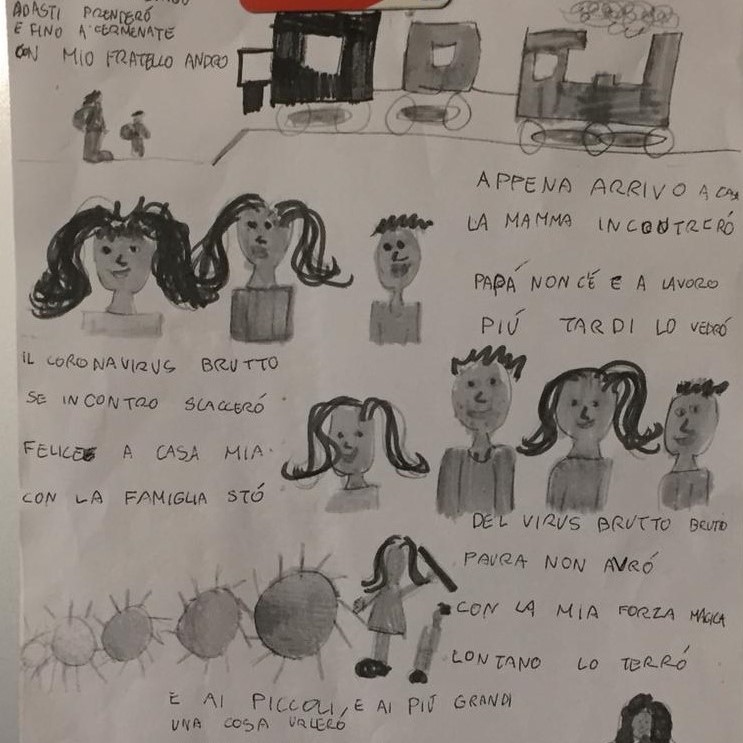 ADASTI PRENDERÓ
E FINO A CERMENATE
CON MIO FRATELLO ANDRO
APPENA ARRIVO A CASA
LA MAMMA INCONTRERÓ
PAPÁ NON CÉ E A LAVORO
PIÚ TARDI LO VEDRÓ
IL CORONAVIRUS BRUTTO
SE INCONTRO SCACCERÓ
FELICE A CASA MIA
CON LA FAMIGLIA STÓ
DEL VIRUS BRUTTO BRUTTO
PAURA NON AVRÓ
CON LA MIA FORZA MAGICA
LONTANO LO TERRÓ
E AI PICCOLI, E AI PIÚ GRANDI
UNA COSA VALERÓ